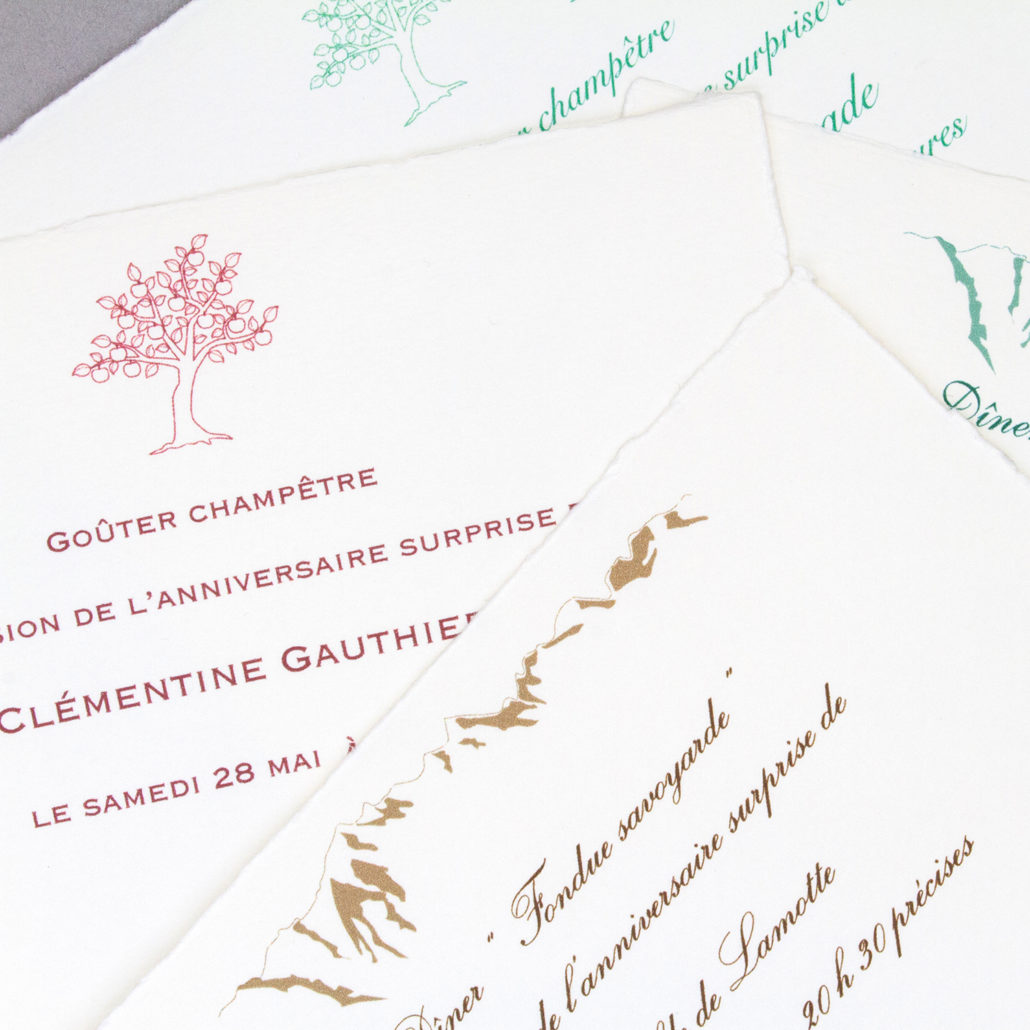 champêtre
surprise
Dîner
GOÛTER CHAMPÊTRE
DE L'ANNIVERSAIRE SURPRISE
CLÉMENTINE GAUTHIER
LE SAMEDI 28 MAI À
Dîner " Fondue savoyarde "
de l'anniversaire surprise de
de Lamotte
20 h 30 précises